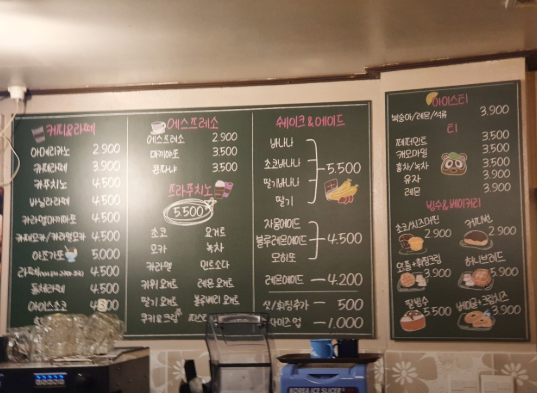 커피&라떼
아메리카노 2.900
카페라떼 3.900
카푸치노 4.500
바닐라라떼 4.500
카라멜마끼아또 4.500
카페모카/카라멜모카 4.500
아포가토 5.000
4.500
토피넛라떼 4.500
아이스초코 4.500
에스프레소
에스프레소 2.900
마끼아또 3.500
콘파냐 3.500
프라푸치노
5.500
초코 요거트
모카 녹차
카라멜 민트소다
커피 요거트 레몬 요거트
딸기 요거트 블루베리 요거트
쿠키&크림
쉐이크&에이드
바나나
초코바나나
딸기바나나
딸기
5.500
자몽에이드
블루레몬에이드
모히또
4.500
레몬에이드 4.200
샷/휘핑추가 500
사이즈 업 1.000
아이스티
복숭아/레몬/석류 3.900
티
페퍼민트 3.500
캐모마일 3.500
홍차/녹차 3.500
유자 3.900
레몬 3.900
빙수&베이커리
초코/치즈머핀 2.900
커피번 2.900
와플+휘핑크림 3.900
허니브레드 5.900
팥빙수 5.500
베이글+크림치즈 3.900
KOREA ICE SLICER